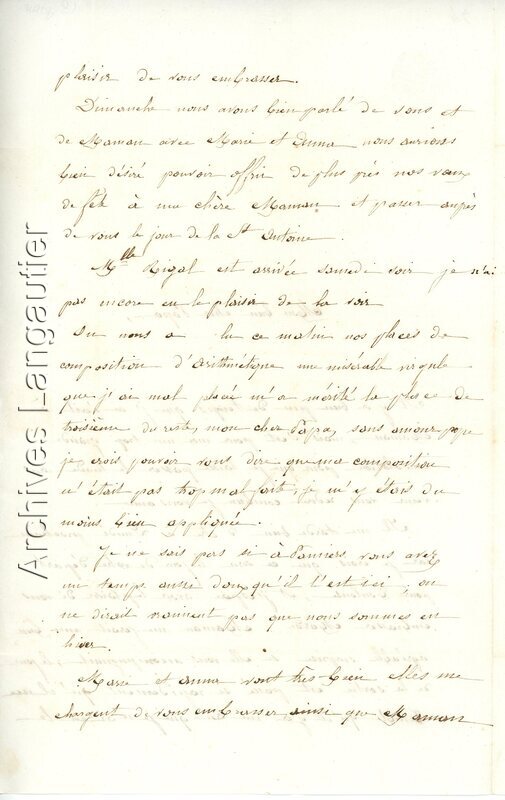 plaisir de vous embrasser.
Dimanche nous avons bien parlé de vous et
de Maman avec Marie et Anna nous aurions
bien désiré pouvoir offrir de plus près nos vœux
de fête à ma chère Maman et passer auprès
de vous le jour de la St Antoine.
Mlle Rigal est arrivée samedi soir je n'ai
pas encore eu le plaisir de la voir
On nous a lu ce matin nos places de
composition d'arithmétique une misérable virgule
que j'ai mal placé m'a mérité la place de
troisième du reste, mon cher Papa, sans amour propre
je crois pouvoir vous dire que ma composition
n'était pas trop mal faite; je m'y étais du
moins bien appliquée.
Je ne sais pas si à Pamiers vous avez
un temps aussi doux qu'il l'est ici, on
ne dirait vraiment pas que nous sommes en
hiver.
Marie et Anna vont très bien elles me
chargent de vous embrasser ainsi que Maman
Archives Langautier